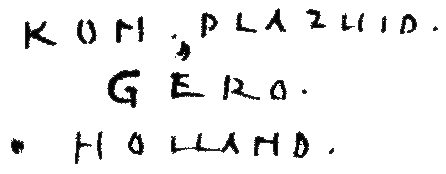 KOM. PLAZUID.
GERO.
HOLLAND.